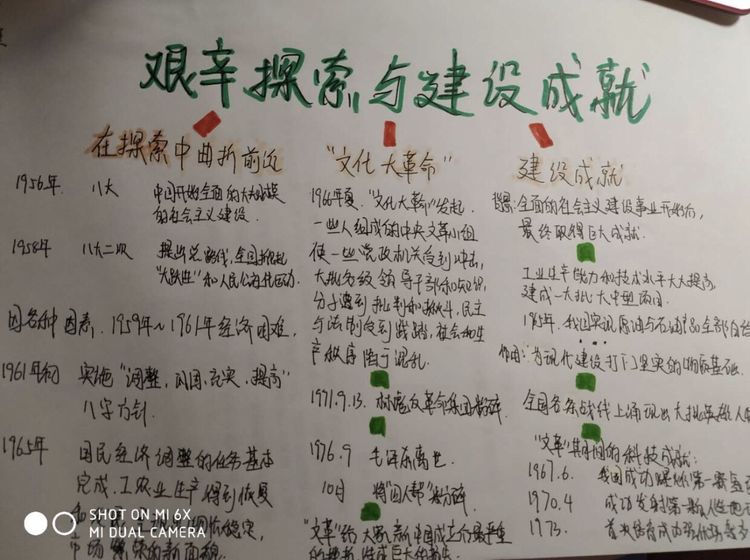 艰辛探索与建设成就
在探索中曲折前进
1956年. 八大 中国开始全面的大规模
的社会主义建设.
1958年 八大二次 提出总路线,全国掀起
"大跃进"和人民公社化运动.
因各种因素,1959年~1961年经济困难.
1961年初 实施"调整,巩固,充实,提高"
八字方针.
1965年 国民经济调整的任务基本
完成.工农业生产得到恢复
"文化大革命"
1966年夏."文化大革命"发起.
一些人组成的中央文革小组
使一些党政机关受到冲击,
大批各级领导干部和知识
分子遭到批判和批斗,民主
与法制受到践踏,社会和生
产秩序陷于混乱.
1971.9.13. 林彪反革命集团粉碎.
1976.9 毛泽东离世.
10月 将"四人帮"粉碎.
建设成就
全面的社会主义建设事业开始后,
最终取得巨大成就.
工业生产能力和技术水平大大提高,
建成一大批大中型
1965年.我国实现原油与石油产品全部自给
作用:为现代建设打下坚实的物质基础.
全国各条战线上涌现出大批英雄人
"文革"其间的科技成就:
1967.6. 我国成功爆炸第一颗氢
1970.4 成功发射第一颗人造地
1973.
SHOT ON MI 6X
MI DUAL CAMERA